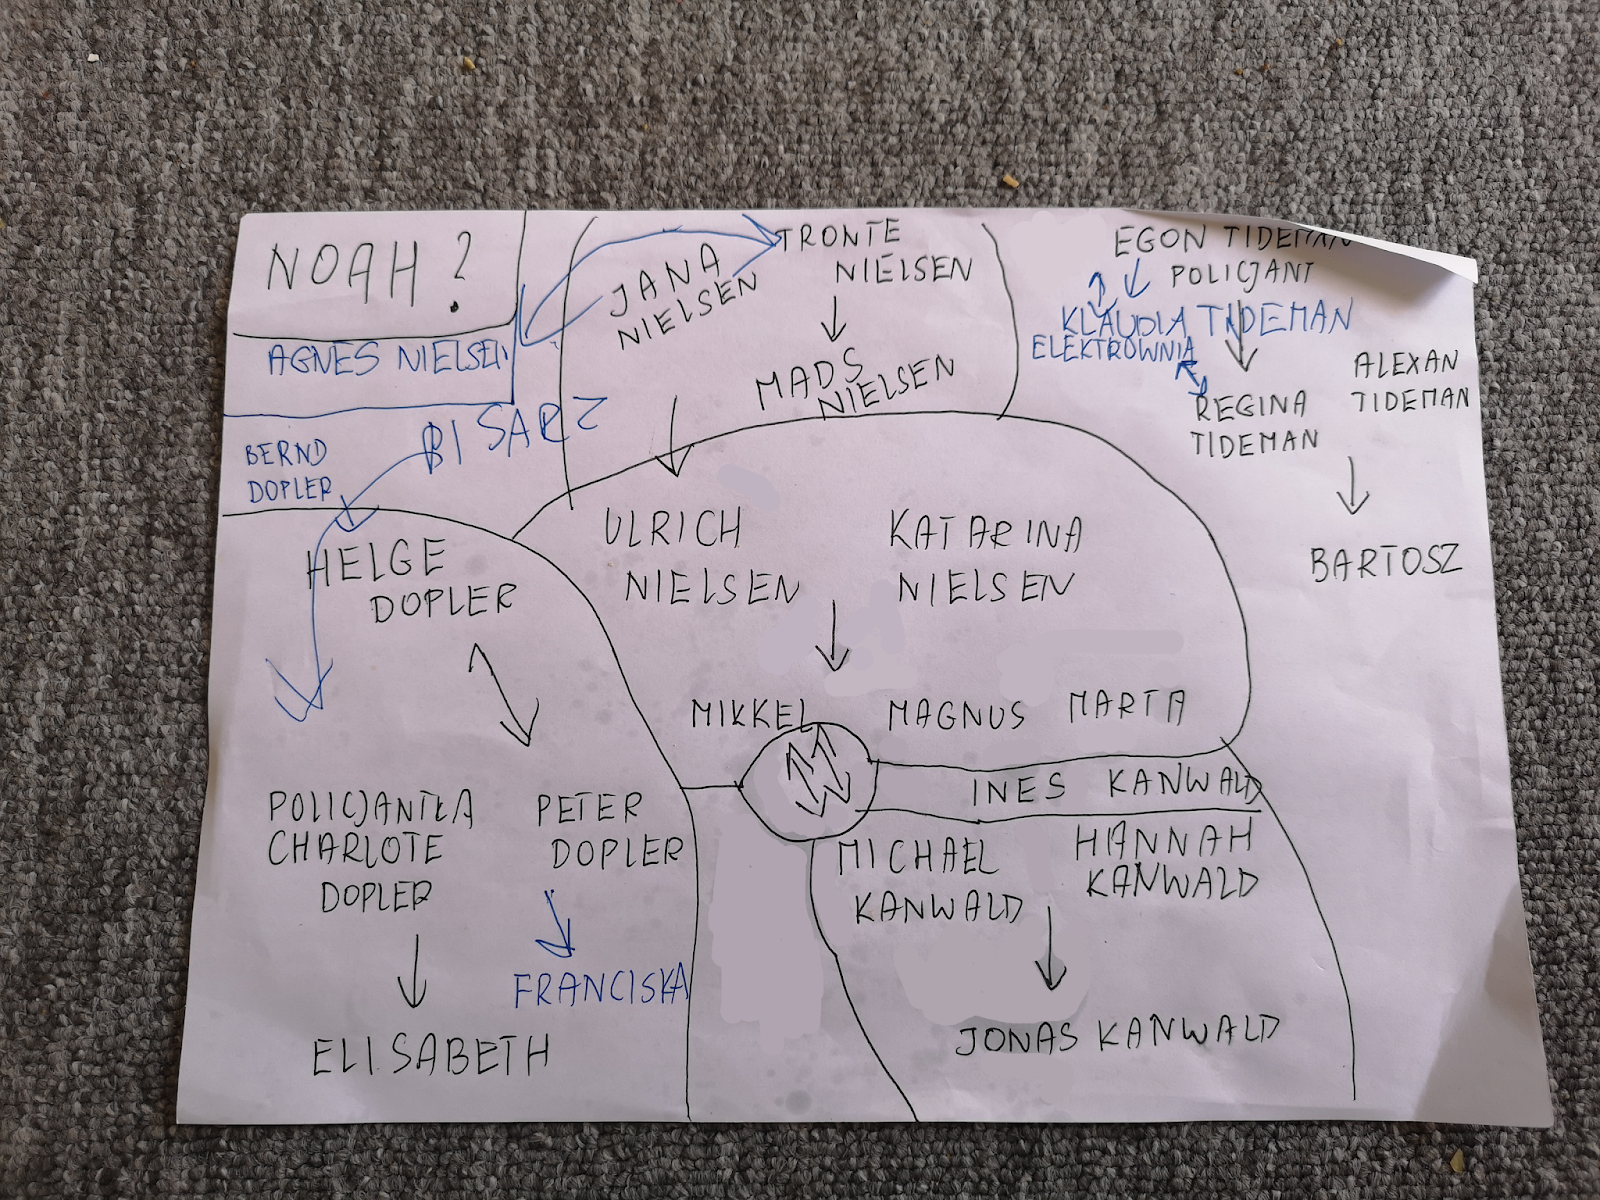 NOAH?
AGNES NIELSEN
BERND
DOPLER
JANA
NIELSEN
TRONTE
NIELSEN
MADS
NIELSEN
EGON TIDEMAN
POLICJANT
KLAUDIA TIDEMAN
ELEKTROWNIA
REGINA
TIDEMAN
ALEXAN
TIDEMAN
BARTOSZ
HELGE
DOPLER
ULRICH
NIELSEN
KATARINA
NIELSEN
MIKKEL
MAGNUS
MARTA
INES KANWALD
POLICJANTKA
CHARLOTE
DOPLER
PETER
DOPLER
MICHAEL
KANWALD
HANNAH
KANWALD
FRANCISKA
ELISABETH
JONAS KANWALD